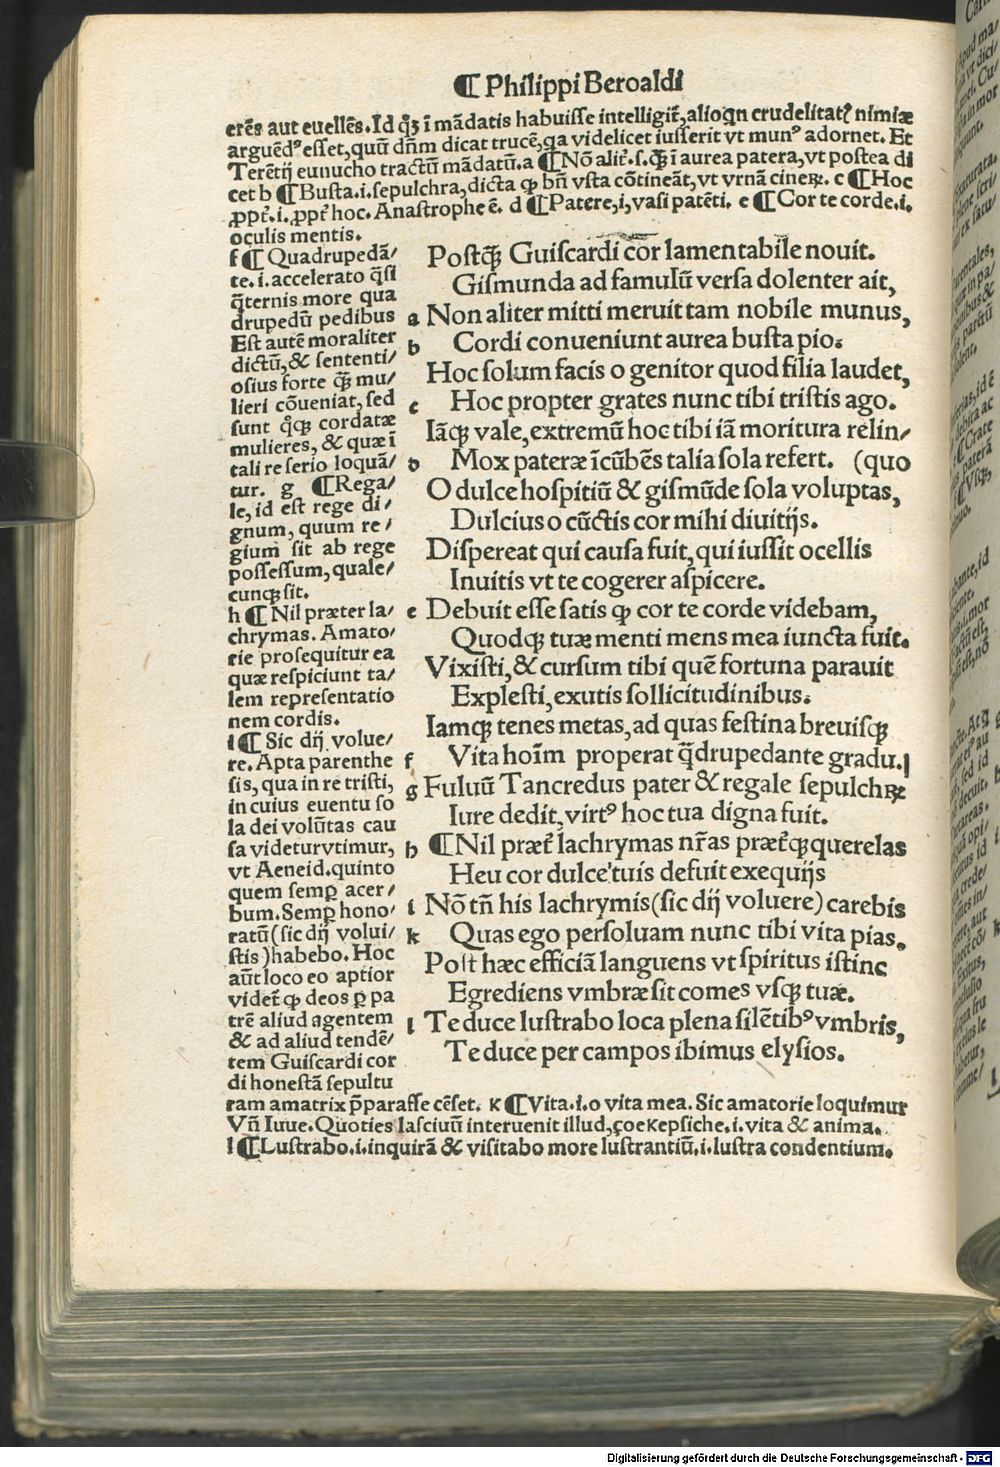 ¶ Philippi Beroaldi
erēs aut euellēs. Id q̊ȝ ī mādatis habuiſſe intelligit̃, alioqn crudelitatꝭ nimiæ
arguēdꝰ eſſet, quū dn̄m dicat trucē, qa videlicet iuſſerit vt munꝰ adornet. Et
Terētij eunucho tractū mādatū. a ¶ Nō alit̃. ſ. q̄ȝ ī aurea patera, vt poſtea di
cet b ¶ Buſta. i. ſepulchra, dicta ꝙ bn̄ vſta cōtineāt, vt vrnā cineꝝ. c ¶ Hoc
ꝓpt̃. i. ꝓpt̃ hoc. Anaſtrophe ē. d ¶ Patere, i, vaſi patēti. e ¶ Cor te corde. i.
oculis mentis.
f ¶ Quadrupedā/
te. i. accelerato q̄ſi
q̄ternis more qua
drupedū pedibus
Eſt autē moraliter
dictū, & ſententi/
oſius forte q̄ȝ mu/
lieri cōueniat, ſed
ſunt q̊qȝ cordatæ
mulieres, & quæ ī
tali re ſerio loquā/
tur. g ¶ Rega/
le, id eſt rege di/
gnum, quum re/
gium ſit ab rege
poſſeſſum, quale/
cunqȝ ſit.
h ¶ Nil præter la/
chrymas. Amato/
rie proſequitur ea
quæ reſpiciunt ta/
lem repreſentatio
nem cordis.
i ¶ Sic dij volue/
re. Apta parenthe
ſis, qua in re triſti,
in cuius euentu ſo
la dei volūtas cau
ſa videtur vtimur,
vt Aeneid. quinto
quem ſemꝑ acer/
bum. Semꝑ hono/
ratū (ſic dij volui/
ſtis) habebo. Hoc
aūt loco eo aptior
videt̃ ꝙ deos ꝑ pa
trē aliud agentem
& ad aliud tendē/
tem Guiſcardi cor
di honeſtā ſepultu
Poſtq̄ȝ Guiſcardi cor lamentabile nouit.
Giſmunda ad famulū verſa dolenter ait,
a Non aliter mitti meruit tam nobile munus,
b Cordi conueniunt aurea buſta pio.
Hoc ſolum facis o genitor quod filia laudet,
c Hoc propter grates nunc tibi triſtis ago.
Iāqȝ vale, extremū hoc tibi iā moritura relin/
d Mox pateræ īcūbēs talia ſola refert. (quo
O dulce hoſpitiū & giſmūde ſola voluptas,
Dulcius o cūctis cor mihi diuitijs.
Diſpereat qui cauſa fuit, qui iuſſit ocellis
Inuitis vt te cogerer aſpicere.
e Debuit eſſe ſatis ꝙ cor te corde videbam,
Quodqȝ tuæ menti mens mea iuncta fuit.
Vixiſti, & curſum tibi quē fortuna parauit
Expleſti, exutis ſollicitudinibus.
Iamqȝ tenes metas, ad quas feſtina breuiſqȝ
f Vita hoīm properat q̄drupedante gradu.
g Fuluū Tancredus pater & regale ſepulchꝝ
Iure dedit, virtꝰ hoc tua digna fuit.
h ¶ Nil præt̃ lachrymas nr̄as præt̃qȝ querelas
Heu cor dulce tuis defuit exequijs
i Nō tn̄ his lachrymis (ſic dij voluere) carebis
k Quas ego perſoluam nunc tibi vita pias.
Poſt hæc efficiā languens vt ſpiritus iſtinc
Egrediens vmbræ ſit comes vſqȝ tuæ.
l Te duce luſtrabo loca plena ſilētibꝰ vmbris,
Te duce per campos ibimus elyſios.
ram amatrix p̄paraſſe cēſet. K ¶ Vita. i. o vita mea. Sic amatorie loquimur
Vn̄ Iuue. Quoties laſciuū interuenit illud, çoe Kepſiche. i. vita & anima.
l ¶ Luſtrabo. i. inquirā & viſitabo more luſtrantiū. i. luſtra condentium.
Digitalisierung gefördert durch die Deutsche Forschungsgemeinschaft - DFG